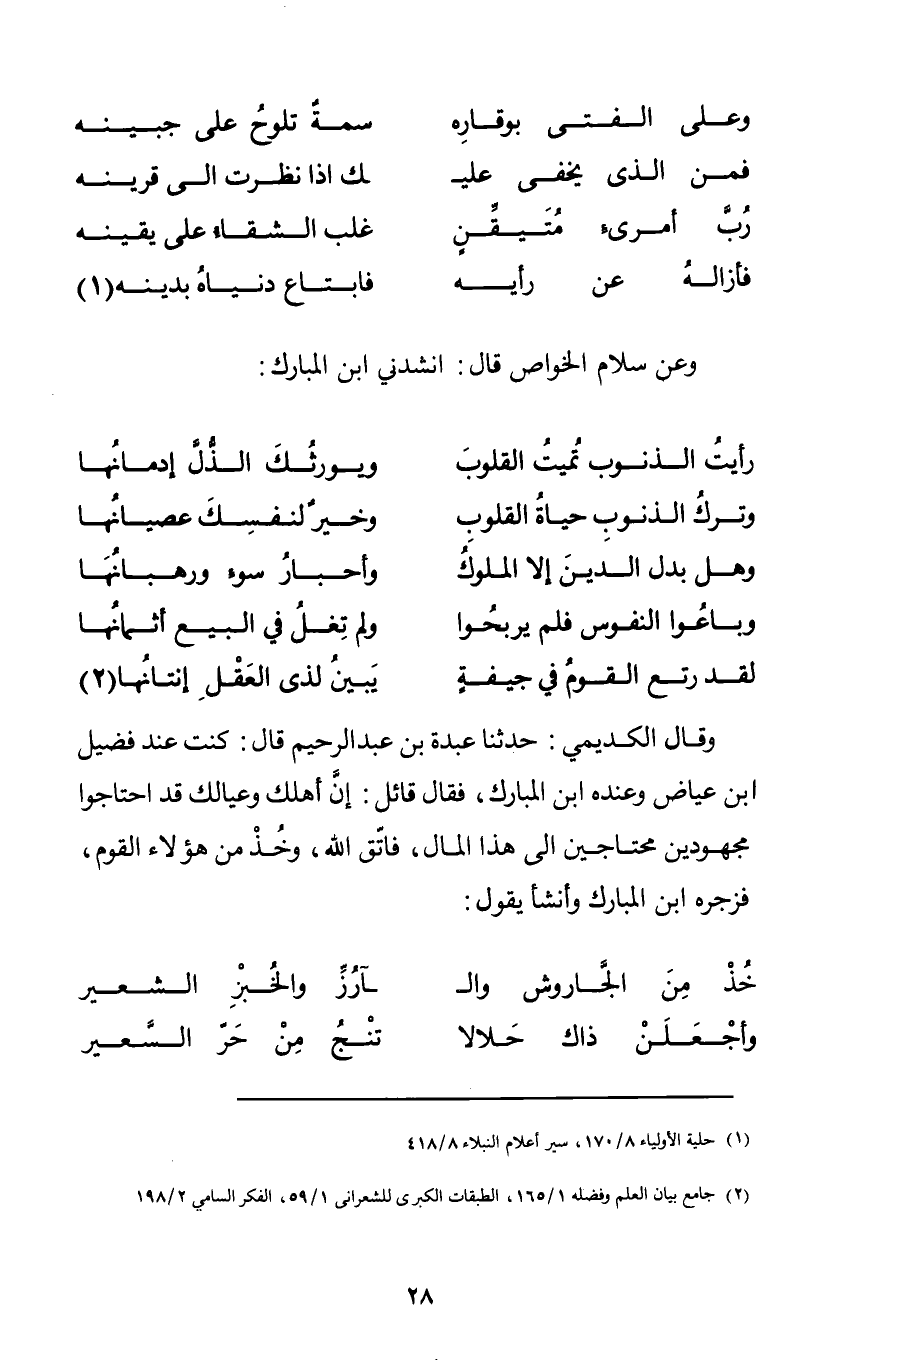 وعلى الفتى بوقارِه سمةٌ تلوحُ على جبينه
فمن الذى يخفى عليـ ـك اذا نظرت الى قرينه
رُبَّ أمرىء مُتَيقِّنٍ غلب الشقاء على يقينه
فأزالهُ عن رأيه فابتاع دنياهُ بدينه(١)
وعن سلام الخواص قال : انشدني ابن المبارك :
رأيتُ الذنوب تُميتُ القلوبَ ويورثُكَ الذُّلَّ إدمانُها
وتركُ الذنوبِ حياةُ القلوبِ وخيرٌ لنفسِكَ عصيانُها
وهل بدل الدينَ إلا الملوكُ وأحبارُ سوء ورهبانُهَا
وباعُوا النفوس فلم يربحُوا ولم تِغلُ في البيع أثمانُها
لقد رتع القومُ في جيفةٍ يَبينُ لذى العَقْلِ إنتانُها(٢)
وقال الكديمي : حدثنا عبدة بن عبدالرحيم قال : كنت عند فضيل
ابن عياض وعنده ابن المبارك ، فقال قائل : إنَّ أهلك وعيالك قد احتاجوا
مجهودين محتاجين الى هذا المال ، فاتّق الله ، وخُذْ من هؤلاء القوم ،
فزجره ابن المبارك وأنشأ يقول :
خُذْ مِنَ الجَّاروش والـ ـآرُزِّ والخُبْزِ الشعير
وأجْعَلَنْ ذاك حَلالا تنْجُ مِنْ حَرّ السَّعير
(١) حلية الأولياء ١٧٠/٨ ، سير أعلام النبلاء ٤١٨/٨
(٢) جامع بيان العلم وفضله ١٦٥/١ ، الطبقات الكبرى للشعرانى ٥٩/١ ، الفكر السامي ١٩٨/٢
٢٨